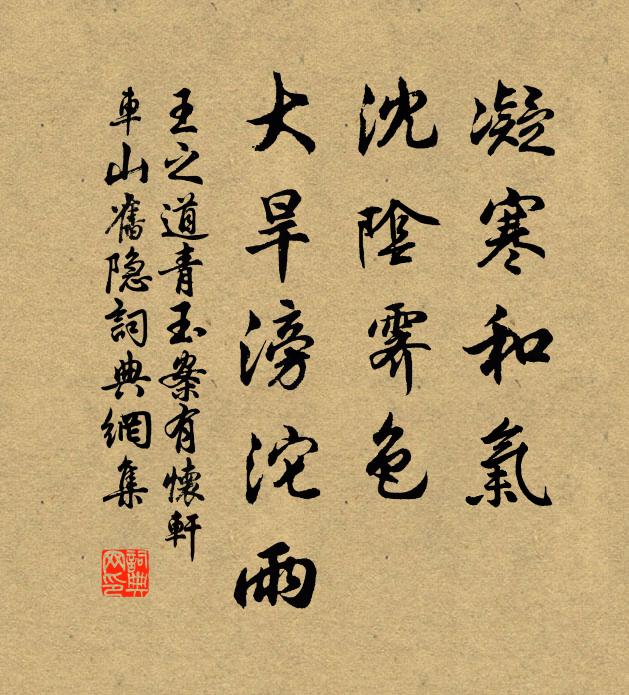 凝寒和氣
沈陰霽色
大旱滂沱雨
王之道青玉案有懷軒
車山舊隐詞典網集
詞典網印